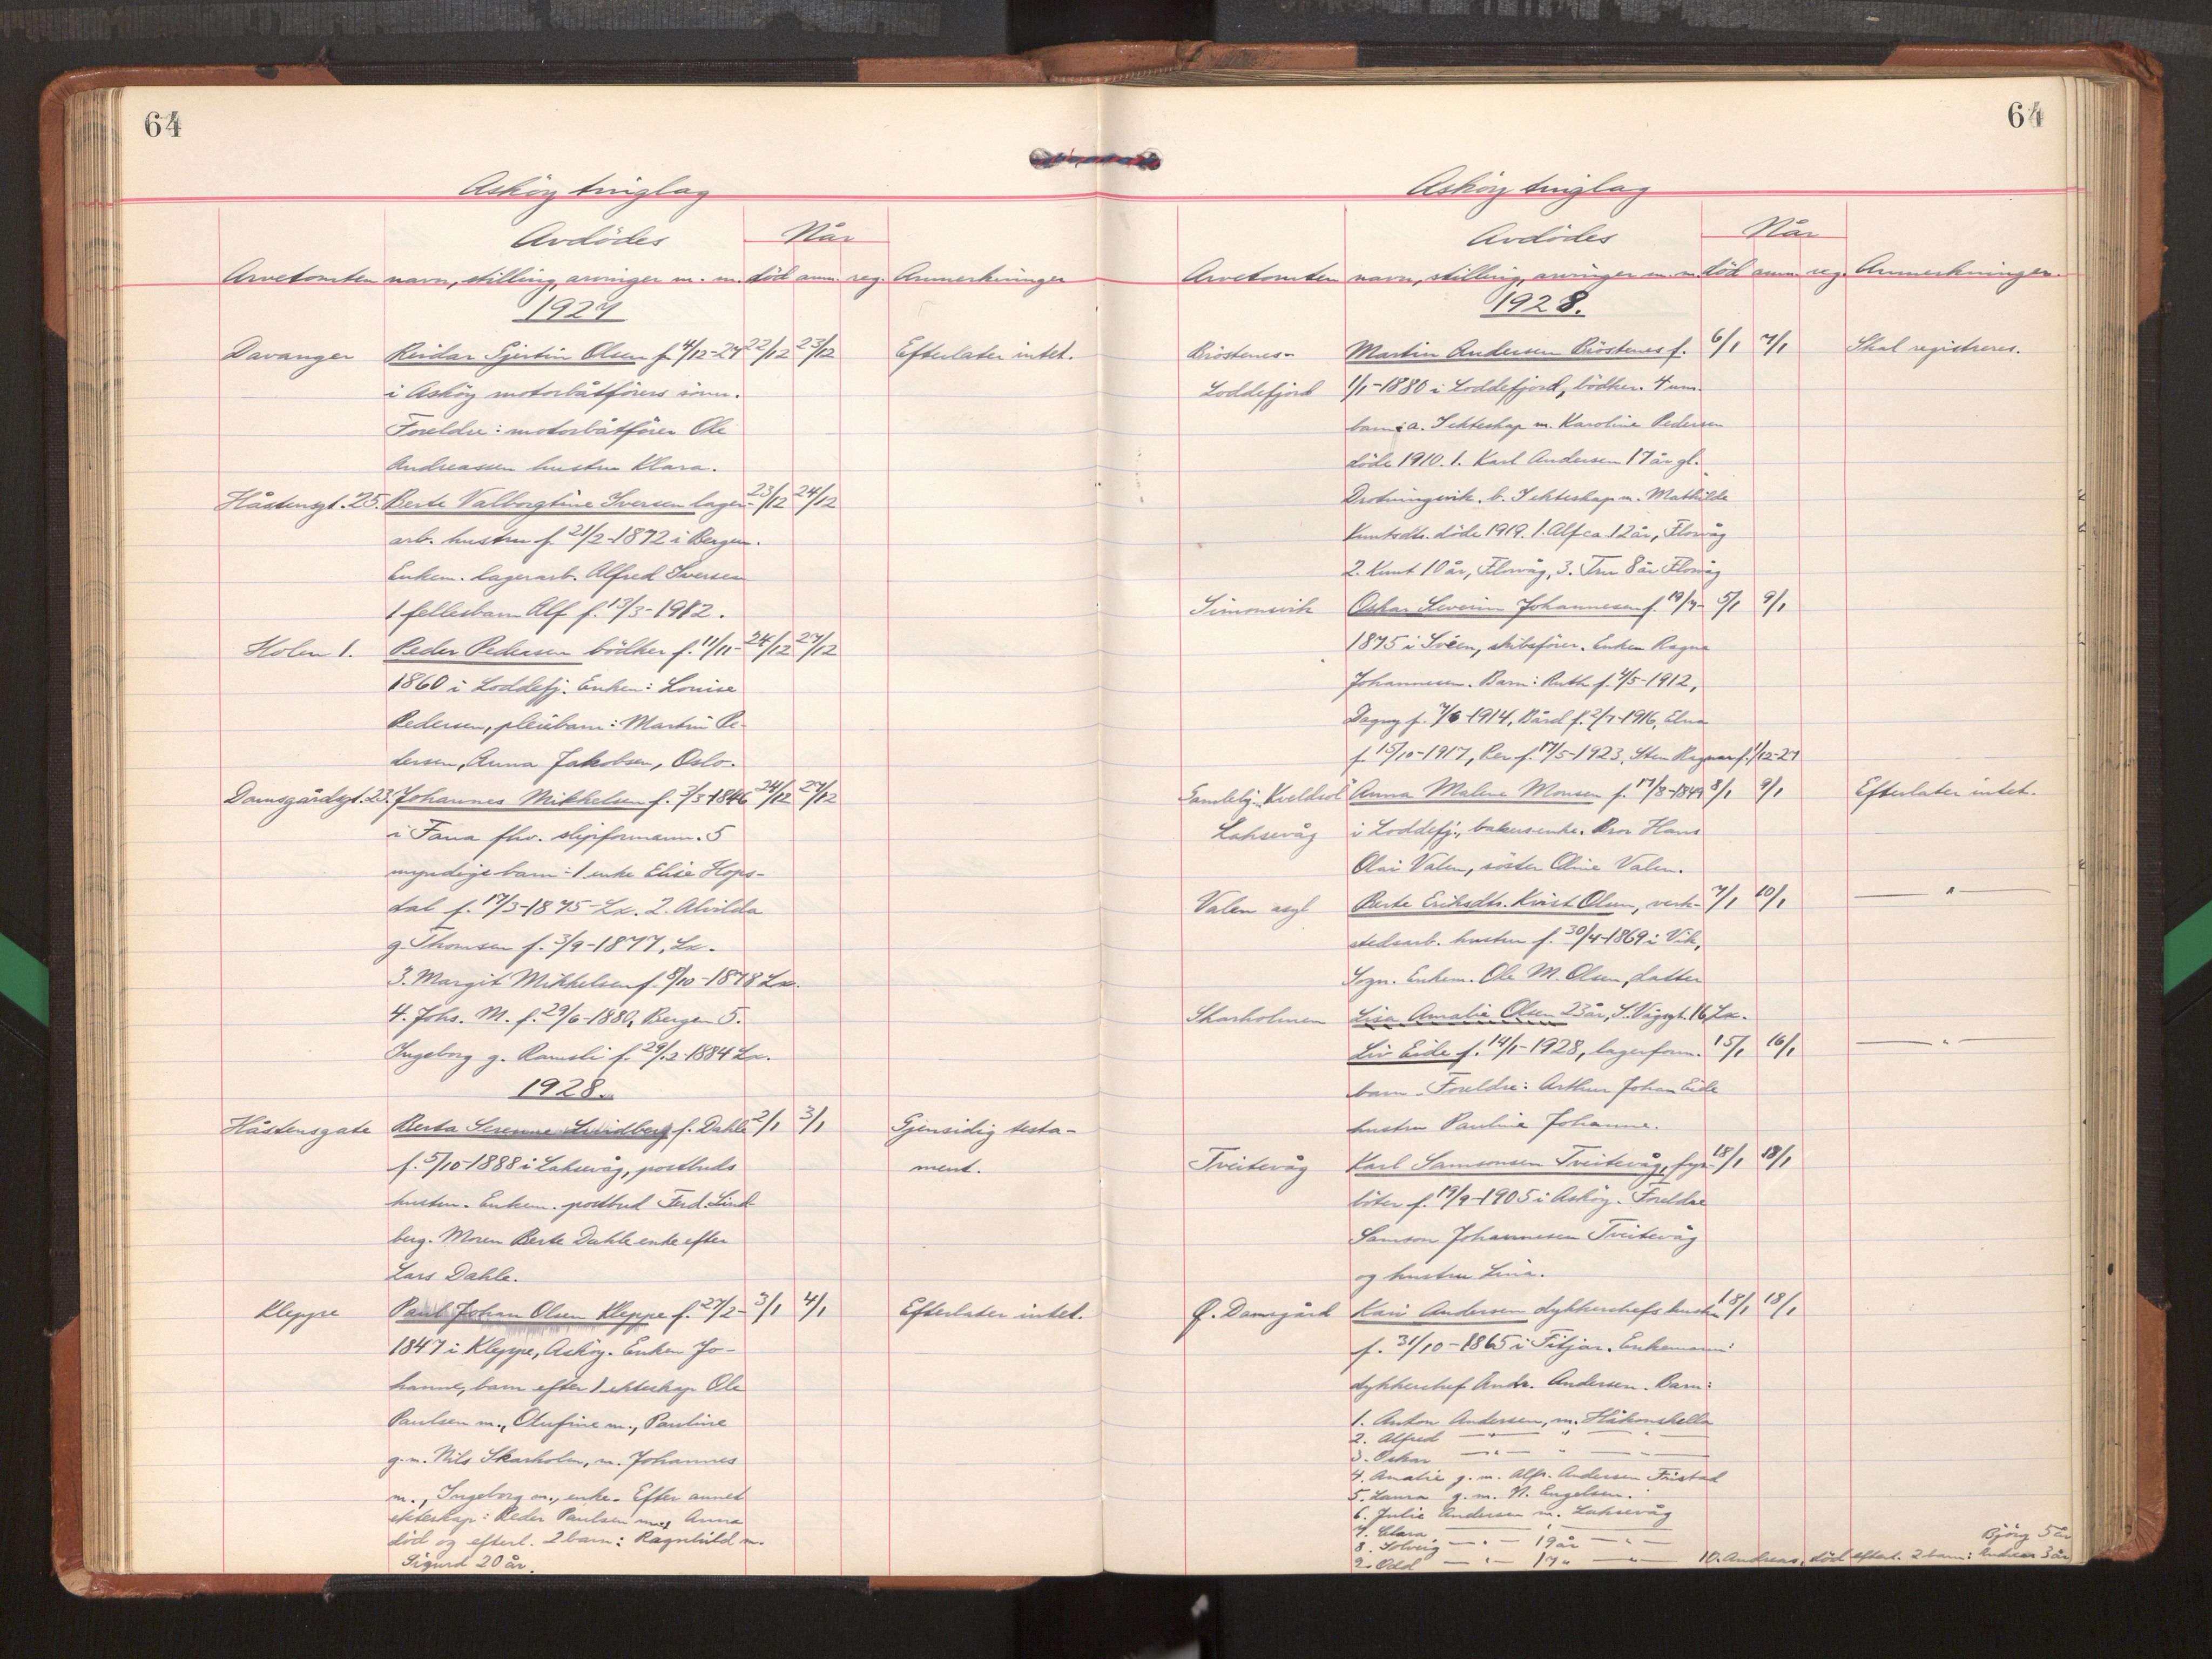 64
Asköy tinglag
Avdödes
Når
Arvetomten navn, stilling, arvinger m. m. död anm. reg. Anmerkninger
1927
Davanger Reidar Gjertin Olsen f. 4/12-27 22/12 23/12 Efterlater intet.
i Asköy motorbåtförers sönn.
Foreldre: motorbåtförer Ole
Andreassen hustru Klara.
Håstensgt. 25. Berte Valborgtine Iversen lager- 23/12 24/12
arb. hustru f. 21/2-1872 i Bergen.
Enkem. lagerarb. Alfred Iversen
1 fellesbarn Alf f. 13/3-1912.
Holen 1. Peder Pedersen bödker f. 11/11- 24/12 27/12
1860 i Loddefj. Enken: Louise
Pedersen, pleiebarn: Martin Pe-
dersen, Anna Jakobsen, Oslo.
Damsgårdsgt. 23. Johannes Mikkelsen f. 3/3-1846 24/12 27/12
i Fana fhv. slipformann. 5
myndige barn: 1 enke Elise Hops-
dal f. 17/3-1875 Lx. 2. Alvilda
g. Thomsen f. 3/9-1877, Lx.
3. Margit Mikkelsen f. 8/10-1878 Lx.
4. Johs. M. f. 29/6-1880, Bergen 5.
Ingeborg g. Ramsli f. 29/12-1884 Lx.
1928.
Håstensgate Berta Serenne Lindberg f. Dahle 2/1 3/1 Gjensidig testa-
f. 5/10-1888 i Laksevåg, postbuds ment.
hustru. Enkem. postbud Ferd. Lind
berg. Moren Berte Dahle enke efter
Lars Dahle.
Kleppe Paul Johan Olsen Kleppe f. 27/2- 3/1 4/1 Efterlater intet.
1847 i Kleppe, Asköy. Enken Jo-
hanne, barn efter 1 ekteskap Ole
Paulsen m., Olufine m., Pauline
g. m. Nils Skarholm, m. Johannes
m., Ingeborg m., enke. Efter annet
ekteskap: Peder Paulsen Anna
död og efterl. 2 barn: Ragnhild m.
Sigurd 20 år.
64
Asköy tinglag
Avdödes
Når
Arvetomten navn, stilling, arvinger m. m. död anm. reg. Anmerkninger.
1928.
Bröstenes- Martin Andersen Bröstenes f. 6/1 7/1 Skal registreres.
Loddefjord 1/1-1880 i Loddefjord, bödker. 4 um.
barn: a. I ekteskap m. Karoline Pedersen
döde 1910. 1. Karl Andersen 17 år gl.
Drotningsvik. b. I ekteskap m. Mathilde
Knutsdtr. döde 1919. 1. Alf ca. 12 år, Florvåg
2. Knut 10 år, Florvåg, 3. Tru 8 år Florvåg
Simonsvik Oskar Severin Johannesen f. 19/7- 5/1 9/1
1875 i Sveen, skibsförer. Enken Ragna
Johannesen. Barn: Ruth f. 4/5-1912,
Dagny f. 7/6-1914, Bård f. 2/7-1916, Elna
f. 15/10-1917, Per f. 17/5-1923, Sten Ragnar f. 1/12-27
Gamlehj. Kveldsol Anna Malene Monsen f. 17/8-1849 8/1 9/1 Efterlater intet.
Laksevåg i Loddefj., bakersenke. Bror Hans
Olai Valen, söster Oline Valen.
Valen asyl Berte Eriksdtr. Kvist Olsen, verk- 7/1 10/1 — " —
stedsarb. hustru f. 30/4-1869 i Vik,
Sogn. Enkem. Ole M. Olsen, datter
Lisa Amalie Olsen 23 år, S. Vågsgt. 16 Lx.
Skarholmen Liv Eide f. 14/1-1928, lagerform. 15/1 16/1 — " —
barn. Foreldre: Arthur Johan Eide
hustru Pauline Johanne.
Tveitevåg Karl Samsonsen Tveitevåg, fyr- 18/1 18/1
böter f. 19/9-1905 i Asköy. Foreldre
Samson Johannesen Tveitevåg
og hustru Lina.
Ø. Damsgård Kari Andersen dykkerchefs hustru 18/1 18/1
f. 31/10-1865 i Fitjar. Enkemann:
dykkerchef Andr. Andersen. Barn:
1. Anton Andersen, m. Håkonshella
2. Alfred — " — " — " —
3. Oskar — " — " — " —
4. Amalie g. m. Alfr. Andersen Fristad
5. Laura g. m. N. Engelsen.
6. Julie Andersen m. Laksevåg
7. Clara — " —
8. Solveig — " — 19 år — " —
9. Odd — " — 17 " — " — 10. Andreas, död efterl. 2 barn: Andrea 3 år
Björg 5 år